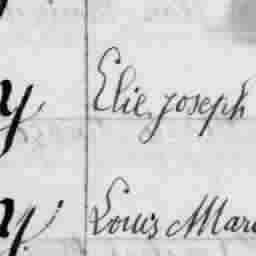 y. Elie, joseph
y. Louis Mar